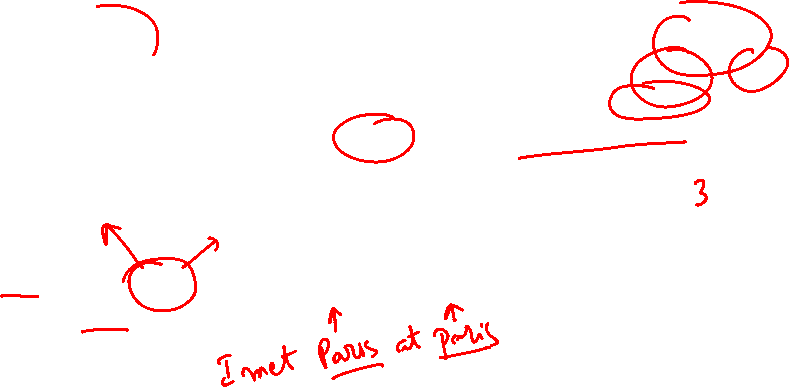 3
I met Paris at Paris